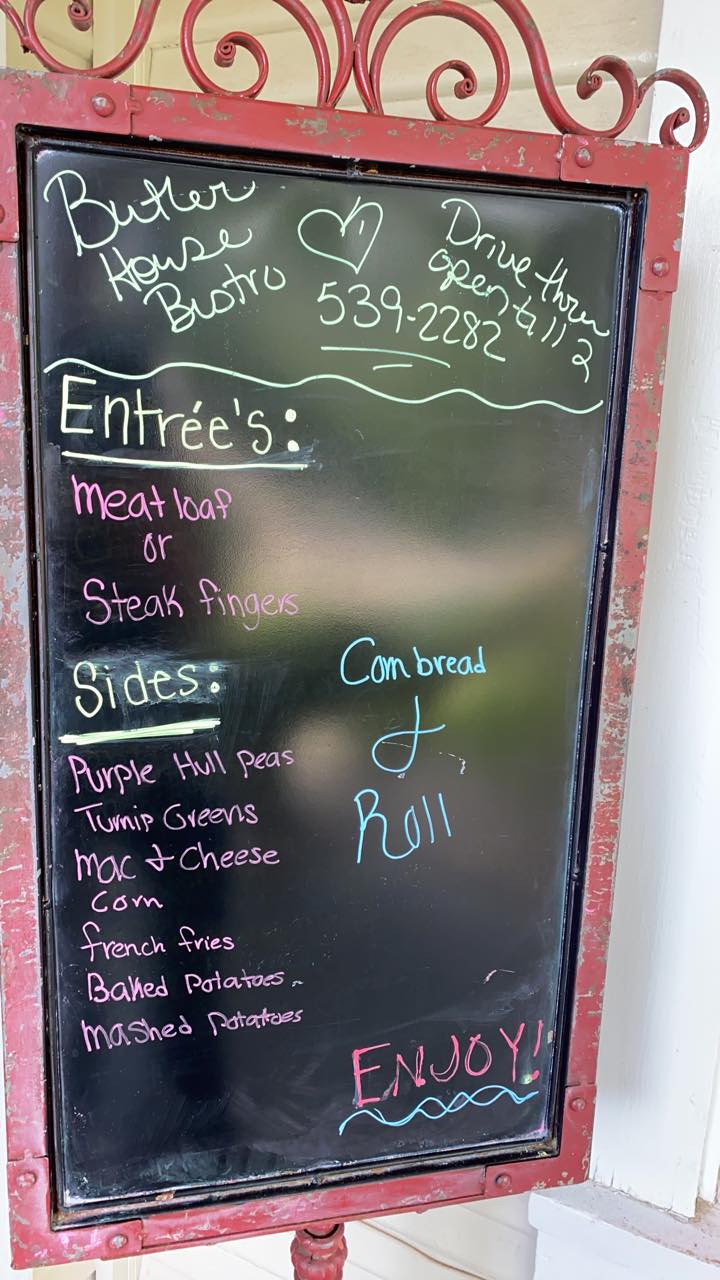 Butler
House
Bistro
539-2282
Drive thru
open till 2
Entrée's:
Meat loaf
or
Steak fingers
Sides:
Purple Hull peas
Turnip Greens
Mac & Cheese
Corn
french fries
Baked Potatoes
Mashed Potatoes
Cornbread
&
Roll
ENJOY!